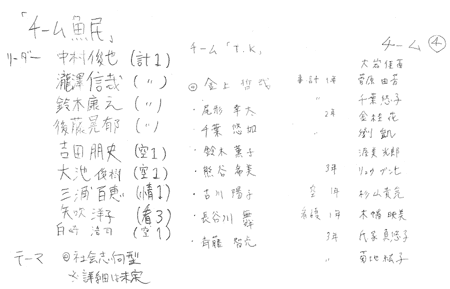 「チーム魚民」
リーダー 中村俊也 (計1)
瀧澤信哉 (〃)
鈴木康之 (〃)
後藤晃郁 (〃)
吉田朋史 (空1)
大池 (空1)
三浦百恵 (情1)
矢吹洋子 (看3)
(空1)
テーマ ◎社会志向型
※詳細は未定
チーム「T.K」
◎金上哲哉
・尾形幸大
・千葉悠加
・鈴木薫子
・熊谷
・古川陽子
・長谷川舞
・斉藤
チーム④
事計 1年
〃
2年
3年
空 1年
看護 1年
3年
〃
大岩佳苗
菅原由芳
千葉悠子
金桂花
劉凱
渥美光郎
杉山貴范
木幡映美
氏家真悠子
菊地絨子